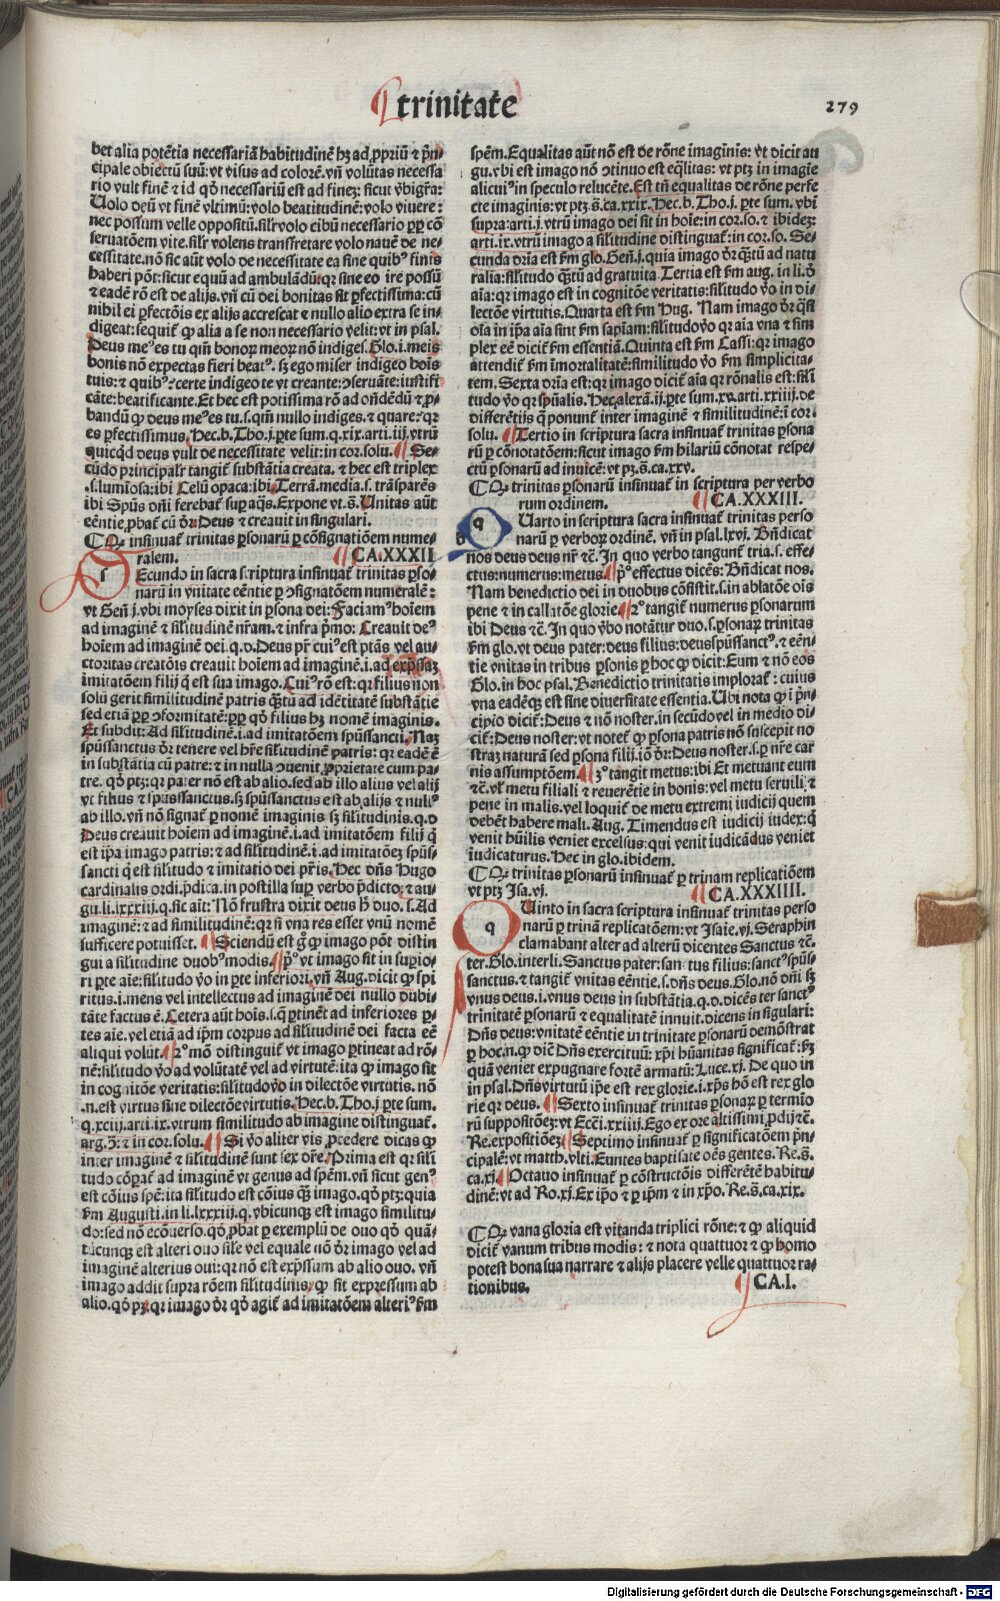 trinitate
279
bet alia potẽtia necessariã habitudinẽ hꝫ ad ꝓpriũ ⁊ p̃n-
cipale obiectũ suũ: vt visus ad colorẽ. vñ volũtas necessa
rio vult finẽ ⁊ id qď necessariũ est ad finez: sicut ꝟbigr̃a:
Uolo deũ vt finẽ vltimũ: volo beatitudinẽ: volo viuere:
nec possum velle oppositũ. sil̃r volo cibũ necessario ꝓꝑ cõ
seruatõem vite. sil̃r volens transfretare volo nauẽ de ne-
cessitate. nõ sic aũt volo de necessitate ea sine quibꝰ finis
haberi põt: sicut equũ ad ambulãdũ: qꝛ sine eo ire possũ
⁊ eadẽ rõ est de alijs. vñ cũ dei bonitas sit ꝑfectissima: cũ
nihil ei ꝑfectõis ex alijs accrescat ⁊ nullo alio extra se in-
digeat: sequit̃ ꝙ alia a se non necessario velit: vt in psal.
Deus meꝰ es tu qm̃ bonoꝝ meoꝝ nõ indiges. Glo. i. meis
bonis nõ expectas fieri beatꝰ. sꝫ ego miser indigeo bois
tuis: ⁊ quibꝰ: certe indigeo te vt creante: ↄseruãte: iustifi
cãte: beatificante. Et hec est potissima rõ ad oñdẽdũ ⁊ ꝓ-
bandũ ꝙ deus meꝰ es tu. s. qm̃ nullo indiges. ⁊ quare: qꝛ
es ꝑfectissimus. Hec. b. Tho. j. ꝑte sum. q. xix. arti. iij. vtrũ
quicq̃d deus vult de necessitate velit: in cor. solu. Se-
cũdo principalr̃ tangit̃ substãtia creata. ⁊ hec est triplex
.s. lumĩosa: ibi Celũ opaca: ibi Terrã. media. s. trãsparẽs
ibi Spũs dñi ferebat̃ suꝑ aq̃s. Expone vt. s̃. Unitas aũt
eẽntie ꝓbat̃ cũ dr̃: Deus ⁊ creauit in singulari.
ꝙ insinuat̃ trinitas ꝑsonarũ ꝑ cõsignatiõem nume-
ralem. CA. XXXII
Secundo in sacra scriptura insinuat̃ trinitas ꝑso-
narũ in vnitate eẽntie ꝑ ↄsignatõem numeralẽ:
vt Geñ. j. vbi moyses dixit in ꝑsona dei: Faciamꝰ hoĩem
ad imaginẽ ⁊ sil̃itudinẽ nr̃am. ⁊ infra p̃mo: Creauit deꝰ
hoĩem ad imaginẽ dei. q. d. Deus pr̃ cuiꝰ est ptãs vel au-
ctoritas creatõis creauit hoĩem ad imaginẽ. i. ad exp̃ssaꝫ
imitatõem filij q̃ est sua imago. Cuiꝰ rõ est: qꝛ filius non
solũ gerit similitudinẽ patris q̃tũ ad idẽtitatẽ substãtie
sed etiã ꝓꝑ ↄformitatẽ: ꝓꝑ qď filius hꝫ nomẽ imaginis.
Et subdit: Ad sil̃itudinẽ. i. ad imitatõem spũssancti. Naꝫ
spũssanctus dr̃ tenere vel hr̃e sil̃itudinẽ patris: qꝛ eadẽ ẽ
in substãtia cũ patre: ⁊ in nulla ↄuenit ꝓprietate cum pa-
tre. qď ptꝫ: qꝛ pater nõ est ab alio. sed ab illo alius vel alij
vt filius ⁊ spũssanctus. sꝫ spũssanctus est ab alijs ⁊ nullꝰ
ab illo. vñ nõ signat̃ ꝑ nomẽ imaginis sꝫ sil̃itudinis. q. d
Deus creauit hoĩem ad imaginẽ. i. ad imitatõem filij q̃
est ip̃a imago patris: ⁊ ad sil̃itudinẽ. i. ad imitatõeꝫ spũs-
sancti q̃ est sil̃itudo ⁊ imitatio dei pr̃is. Hec dñs Hugo
cardinalis ordi. p̃dica. in postilla suꝑ verbo p̃dicto: ⁊ au-
gu. li. lxxxiij. q. sic ait: Nõ frustra dixit deus hꝰ duo. s. Ad
imaginẽ: ⁊ ad similitudinẽ: qꝛ si vna res esset vnũ nomẽ
sufficere potuisset. Sciendũ est g̃ ꝙ imago põt distin
gui a sil̃itudine duobꝰ modis. p̃º vt imago sit in suꝑio-
ri ꝑte aĩe: sil̃itudo ꝟo in ꝑte inferiori. vñ Aug. dicit ꝙ spi
ritus. i. mens vel intellectus ad imaginẽ dei nullo dubi-
tãte factus ẽ. Cetera aũt hois. s. q̃ ꝑtinẽt ad inferiores ꝑ-
tes aĩe. vel etiã ad ip̃m corpus ad sil̃itudinẽ dei facta eẽ
aliqui volũt. 2º mõ distinguit̃ vt imago ꝑtineat ad rõ-
nẽ: sil̃itudo ꝟo ad volũtatẽ vel ad virtutẽ: ita ꝙ imago sit
in cognitõe veritatis: sil̃itudo ꝟo in dilectõe virtutis. nõ
.n. est virtus sine dilectõe virtutis. Hec. b. Tho. j ꝑte sum.
q. xciij. arti. ix. vtrum similitudo ab imagine distinguat̃.
arg. 3. ⁊ in cor. solu. Si ꝟo aliter vis ꝓcedere dicas ꝙ
inter imaginẽ ⁊ sil̃itudinẽ sunt sex dr̃e. Prima est qꝛ sil̃i
tudo cõꝑat̃ ad imaginẽ vt genus ad spẽm. vñ sicut genꝰ
est cõius spẽ: ita sil̃itudo est cõius q̃ꝫ imago. qď ptꝫ: quia
ẜm Augusti. in li. lxxxiij. q. vbicunqꝫ est imago similitu-
do: sed nõ ecõuerso. qď ꝓbat ꝑ exemplũ de ouo qď quã-
tũcunqꝫ est alteri ouo sil̃e vel equale nõ dr̃ imago vel ad
imaginẽ alterius oui: qꝛ nõ est exp̃ssum ab alio ouo. vñ
imago addit supra rõem sil̃itudinis. ꝙ sit expressum ab
alio. qď pꝫ. qꝛ imago dr̃ qď agit̃ ad imitatõem alteriꝰ ẜm
spẽm. Equalitas aũt nõ est de rõne imaginis: vt dicit au
gu. vbi est imago nõ ↄtinuo est eq̃litas: vt ptꝫ in imagĩe
alicuiꝰ in speculo relucẽte. Est tñ equalitas de rõne perfe
cte imaginis: vt ptꝫ s̃. ca. xxix. Hec. b. Tho. j. ꝑte sum. vbi
supra: arti. j. vtrũ imago dei sit in hoĩe: in cor. so. ⁊ ibidez:
arti. ix. vtrũ imago a sil̃itudine distinguat̃: in cor. so. Se-
cunda dr̃ia est ẜm glo. Geñ. j. quia imago dr̃ q̃tũ ad natu
ralia: sil̃itudo q̃tũ ad gratuita. Tertia est ẜm aug. in li. ď
aĩa: qꝛ imago est in cognitõe veritatis: sil̃itudo ꝟo in di-
lectõe virtutis. Quarta est ẜm Hug. Nam imago dr̃ q̃sĩ
oĩa in ip̃a aĩa sint ẜm sapĩam: sil̃itudo ꝟo qꝛ aĩa vna ⁊ sim
plex eẽ dicit̃ ẜm essentiã. Quinta est ẜm Cassi: qꝛ imago
attendit̃ ẜm ĩmortalitatẽ: similitudo ꝟo ẜm simplicita-
tem. Sexta dr̃ia est: qꝛ imago dicit̃ aĩa qꝛ rõnalis est: sil̃i
tudo ꝟo qꝛ spũalis. Hec alexã. ij. ꝑte sum. xv. arti. xxiiij. de
differẽtijs q̃ ponunt̃ inter imaginẽ ⁊ similitudinẽ: ĩ cor.
solu. Tertio in scriptura sacra insinuat̃ trinitas ꝑsona
rũ ꝑ cõnotatõem: sicut imago ẜm hilariũ cõnotat respe-
ctũ ꝑsonarũ ad inuicẽ: vt ptꝫ. s̃. ca. xxv.
ꝙ trinitas ꝑsonarũ insinuat̃ in scriptura per verbo
rum ordinem. CA. XXXIII.
Quarto in scriptura sacra insinuat̃ trinitas perso
narũ ꝑ verboꝝ ordinẽ. vñ in psal. lxvj. Bñdicat
nos deus deus nr̃ ⁊c̃. In quo verbo tangunt̃ tria. s. effe-
ctus: numerus: metus. p̃º effectus dicẽs: Bñdicat nos.
Nam benedictio dei in duobus cõsistit. s. in ablatõe oĩs
pene ⁊ in collatõe glorie. 2º tangit̃ numerus ꝑsonarum
ibi Deus ⁊c̃. In quo ꝟbo notãtur duo. s. ꝑsonaꝝ trinitas
ẜm glo. vt deus pater: deus filius: deus spũssanctꝰ. ⁊ eẽn-
tie vnitas in tribus ꝑsonis ꝑ hoc ꝙ dicit: Eum ⁊ nõ eos
Glo. in hoc psal. Benedictio trinitatis implorat̃: cuius
vna eadẽqꝫ est sine diuersitate essentia. Ubi nota ꝙ ĩ p̃n-
cipio dicit̃: Deus ⁊ nõ noster. in secũdo vel in medio di-
cit̃: Deus noster: vt notet̃ ꝙ ꝑsona patris nõ suscepit no
straꝫ naturã sed ꝑsona filij. iõ dr̃: Deus noster. s. ꝑ nr̃e car
nis assumptõem. 3º tangit metus: ibi Et metuant eum
⁊c̃. vl̃ metu filiali ⁊ reuerẽtie in bonis: vel metu seruili ⁊
pene in malis. vel loquit̃ de metu extremi iudicij quem
debẽt habere mali. Aug. Timendus est iudicij iudex: q̃
venit hũilis veniet excelsus: qui venit iudicãdus veniet
iudicaturus. Hec in glo. ibidem.
ꝙ trinitas ꝑsonarũ insinuat̃ ꝑ trinam replicatiõem
vt ptꝫ Isa. vj. CA. XXXIIII.
Quinto in sacra scriptura insinuat̃ trinitas perso
narũ ꝑ trinã replicatõem: vt Isaie. vj. Seraphin
clamabant alter ad alterũ dicentes Sanctus ⁊c̃.
ter. Glo. interli. Sanctus pater: sanctus filius: sanctꝰ spũs-
sanctus. ⁊ tangit̃ vnitas eẽntie. s. dñs deus. Glo. nõ dñi sꝫ
vnus deus. i. vnus deus in substãtia. q. d. dicẽs ter sanctꝰ
trinitatẽ ꝑsonarũ ⁊ equalitatẽ innuit. dicens in sĩgulari:
Dñs deus: vnitatẽ eẽntie in trinitate ꝑsonarũ demõstrat
ꝑ hoc. n. ꝙ diẽ Dñs exercituũ: xp̃i hũanitas significat̃: ẜm
quã veniet expugnare fortẽ armatũ: Luce. xj. De quo in
in psal. Dñs virtutũ ip̃e est rex glorie. i. xp̃s hõ est rex glo
rie qꝛ deus. Sexto insinuat̃ trinitas ꝑsonaꝝ ꝑ termio
rũ suppositõeꝫ: vt Ecc̃i. xxiiij. Ego ex ore altissimi ꝓdij ⁊c̃.
Re. expositiõeꝫ Septimo insinuat̃ ꝑ significatõem p̃n-
cipalẽ: vt matth. vlti. Euntes baptisate oẽs gentes. Re. s̃.
ca. xj. Octauo insinuat̃ ꝑ cõstructõis differẽtẽ habitu-
dinẽ: vt ad Ro. xj. Ex ip̃o ⁊ ꝑ ip̃m ⁊ in xp̃o. Re. s̃. ca. xix.
ꝙ vana gloria est vitanda triplici rõne: ⁊ ꝙ aliquid
dicit̃ vanum tribus modis: ⁊ nota quattuor ⁊ ꝙ homo
potest bona sua narrare ⁊ alijs placere velle quattuor ra-
tionibus. CA. I.
Digitalisierung gefördert durch die Deutsche Forschungsgemeinschaft - DFG